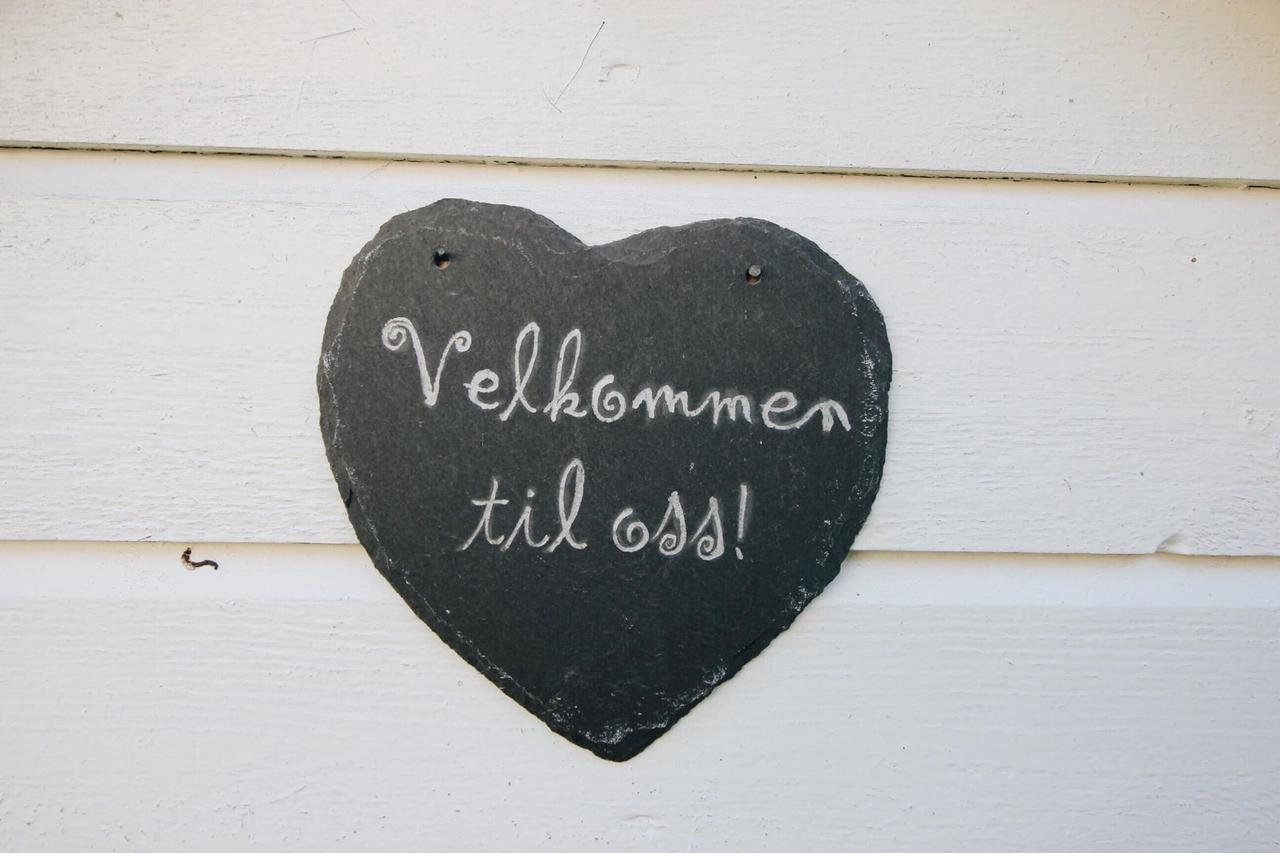 Velkommen
til oss!